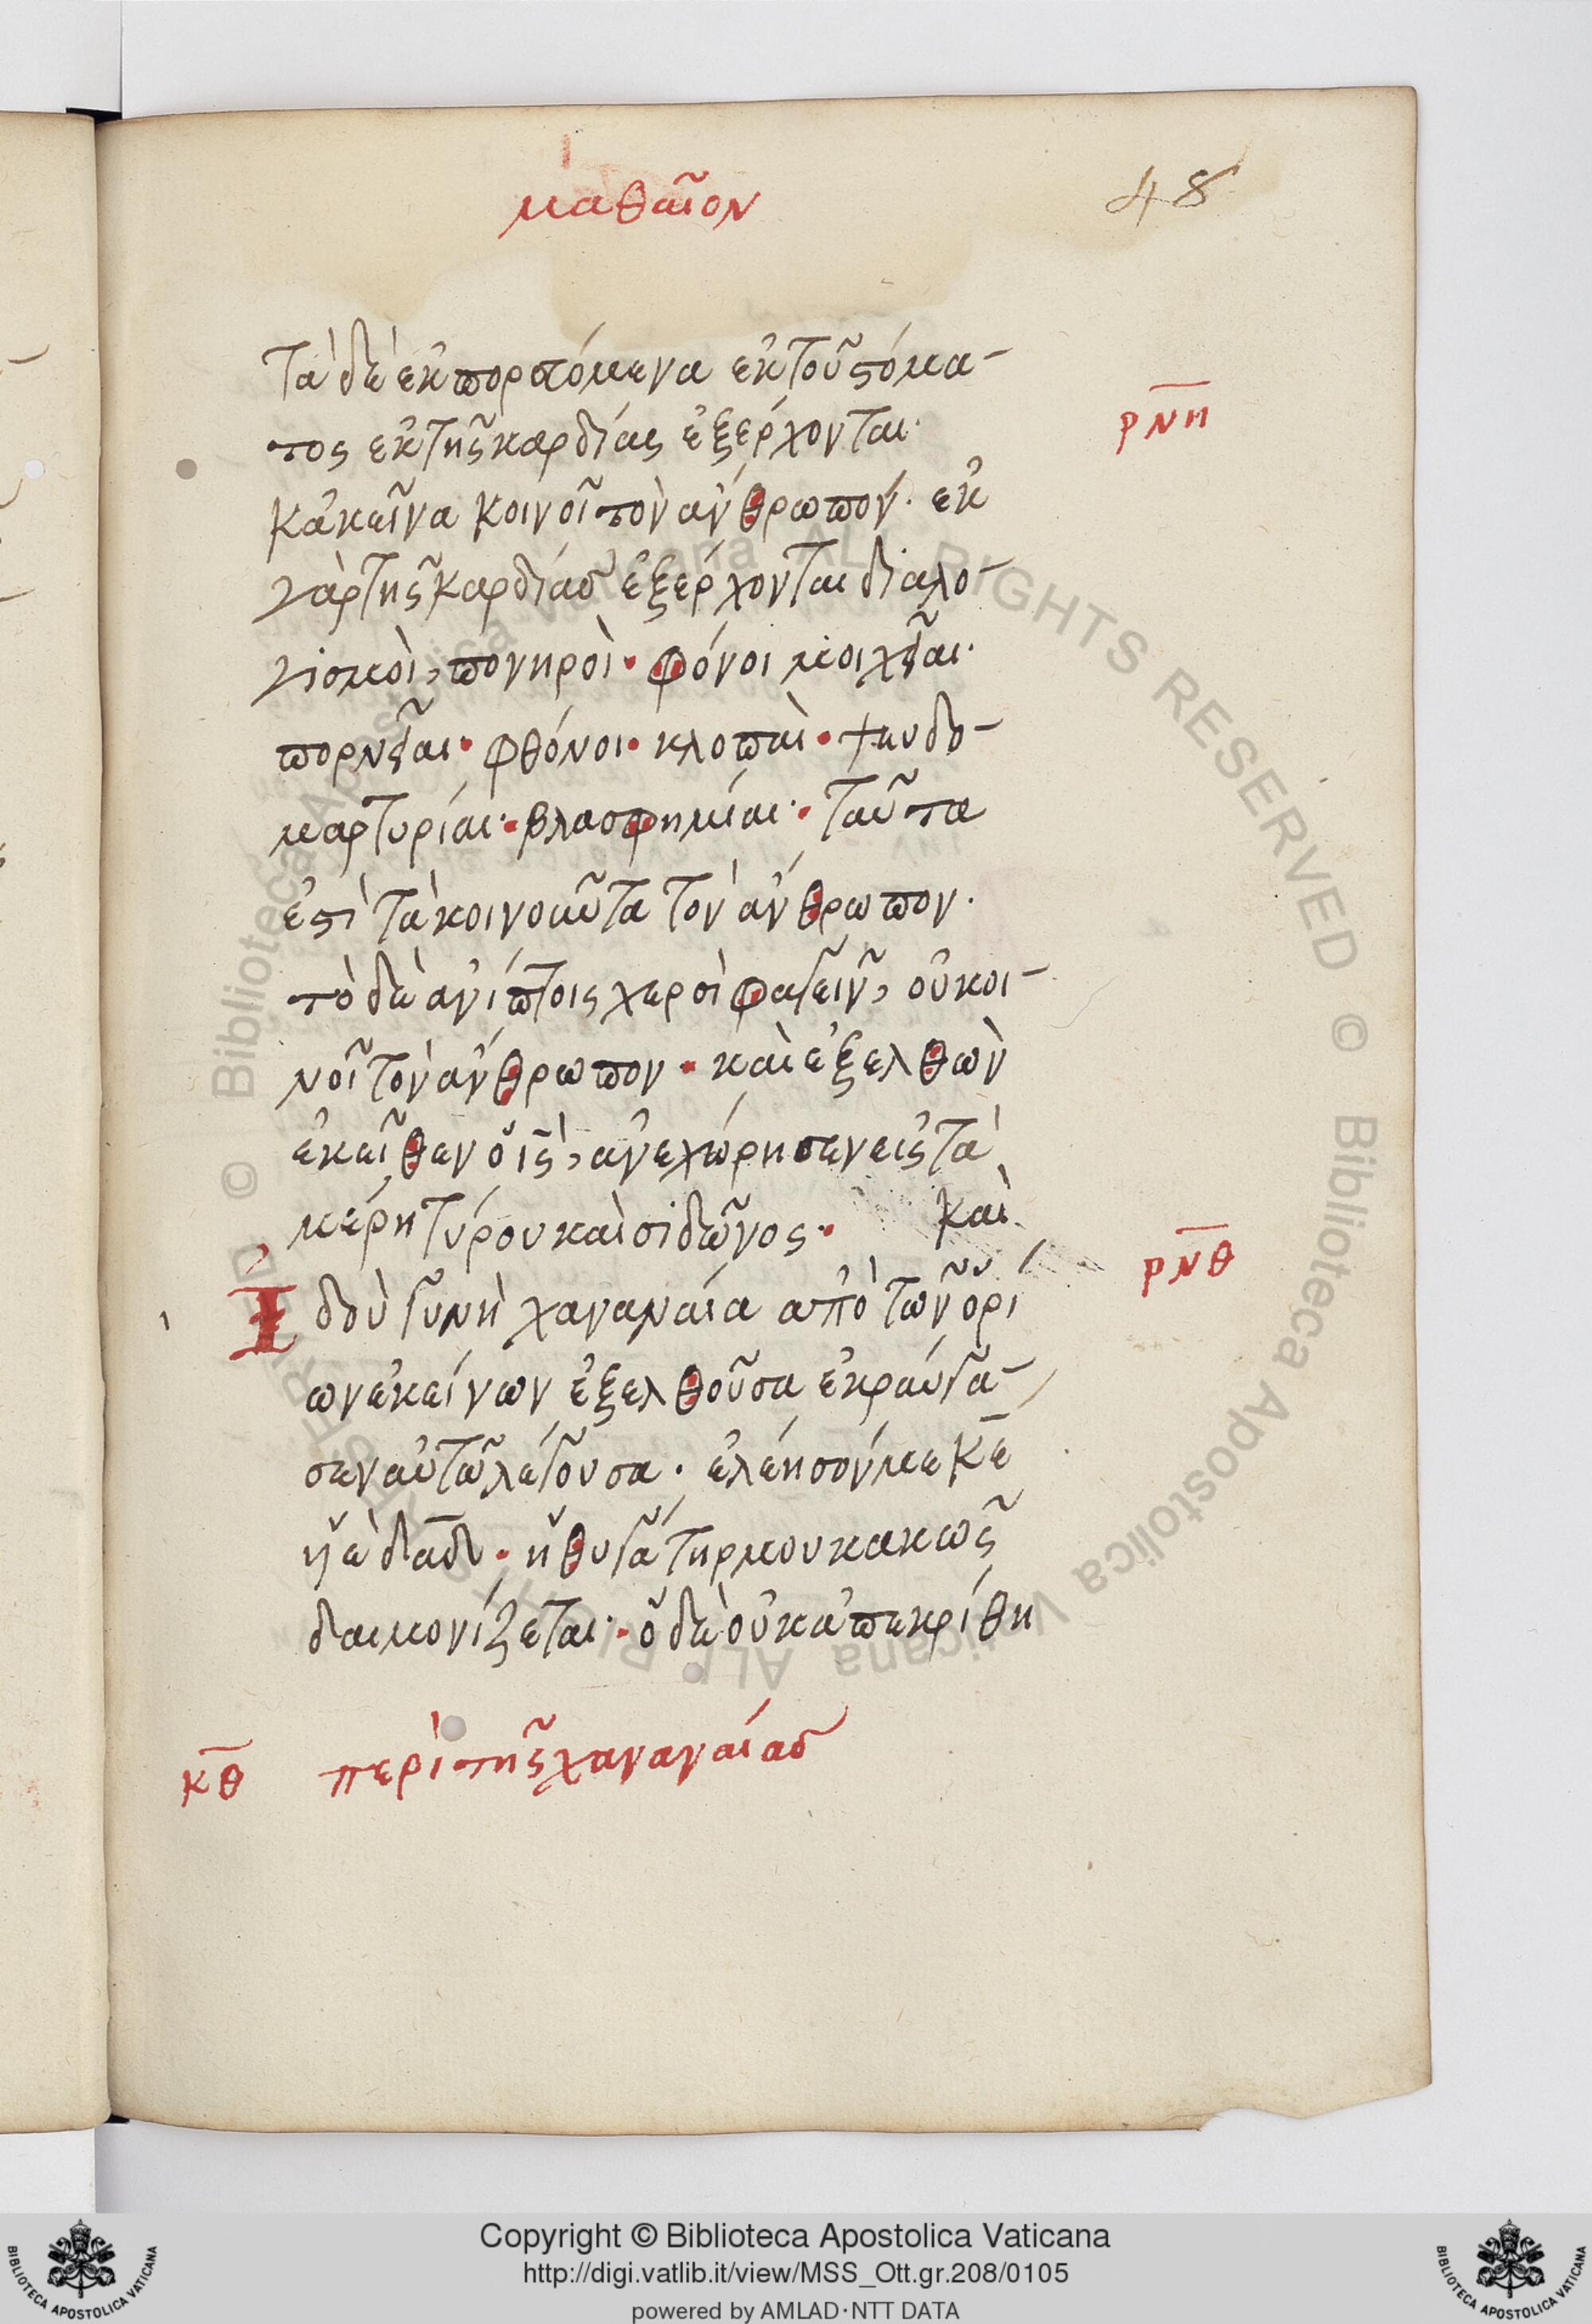 μαθαῖον
48
τὰ δὲ ἐκπορευόμενα ἐκ τοῦ στόμα-
τος ἐκ τῆς καρδίας ἐξέρχονται·
ρνη
κἀκεῖνα κοινοῖ τὸν ἄνθρωπον· ἐκ
γὰρ τῆς καρδίας ἐξέρχονται διαλο-
γισμοὶ, πονηροὶ· φόνοι μοιχεῖαι·
πορνεῖαι· φθόνοι· κλοπαὶ· ψευδο-
μαρτυρίαι· βλασφημίαι· ταῦτα
ἐστὶ τὰ κοινοῦντα τὸν ἄνθρωπον·
τὸ δὲ ἀνίπτοις χερσὶ φαγεῖν, οὐ κοι-
νοῖ τὸν ἄνθρωπον· καὶ ἐξελθὼν
ἐκεῖθεν ὁ ις̄, ἀνεχώρησεν εἰς τὰ
μέρη τύρου καὶ σιδῶνος· καὶ
ρνθ
Ἰδοὺ γυνὴ χαναναία ἀπὸ τῶν ὁρί
ων ἐκείνων ἐξελθοῦσα ἐκραύγα-
σεν αὐτῶ λέγουσα· ἐλέησόν με κε̄
ὑὲ δαδ̄· ἡ θυγάτηρ μου κακῶς
δαιμονίζεται· ὁ δὲ οὐκ ἀπεκρίθη
κθ περὶ τῆς χαναναίας
Copyright © Biblioteca Apostolica Vaticana
http://digi.vatlib.it/view/MSS_Ott.gr.208/0105
powered by AMLAD·NTT DATA